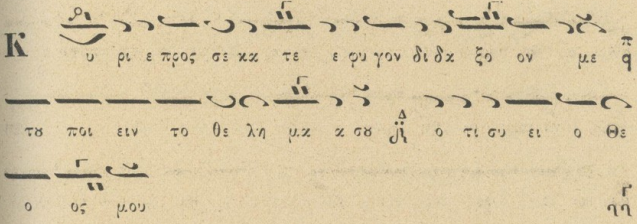 Κ υ ρι ε προς σε κα τε ε φυ γον δι δα ξο ον με
του ποι ειν το θε λη μα α σου ο τι συ ει ο Θε
ο ος μου